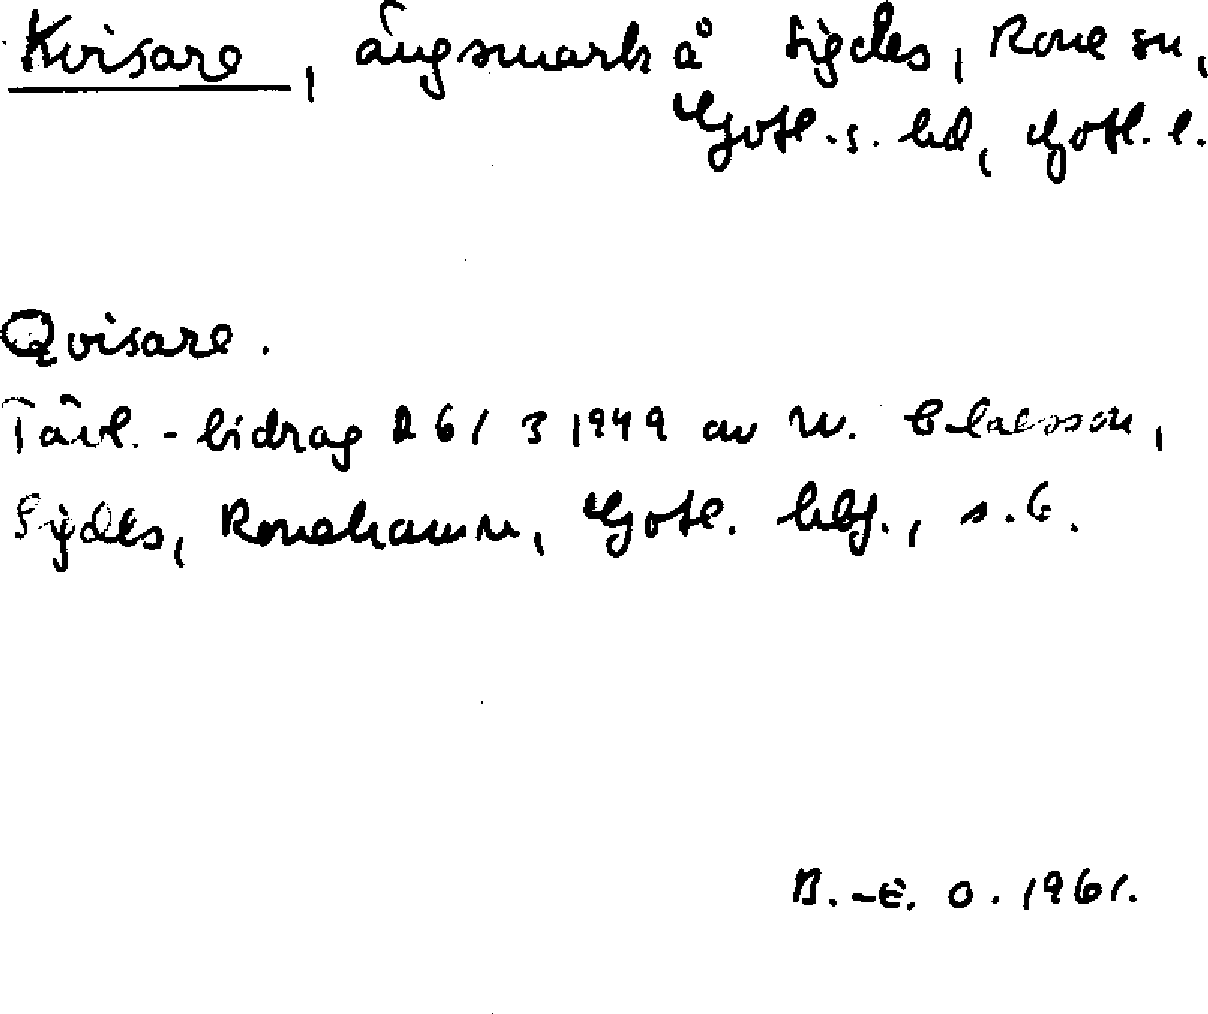 Kvisare, ängsmark å Sigdes, Rone sn,
Gotl. s. hd, Gotl. l.
Qvisare.
Tävl.-bidrag 26/3 1949 av W. Claesson,
Sigdes, Ronehamn, Gotl. hbf., s. 6.
B.-E. O. 1961.